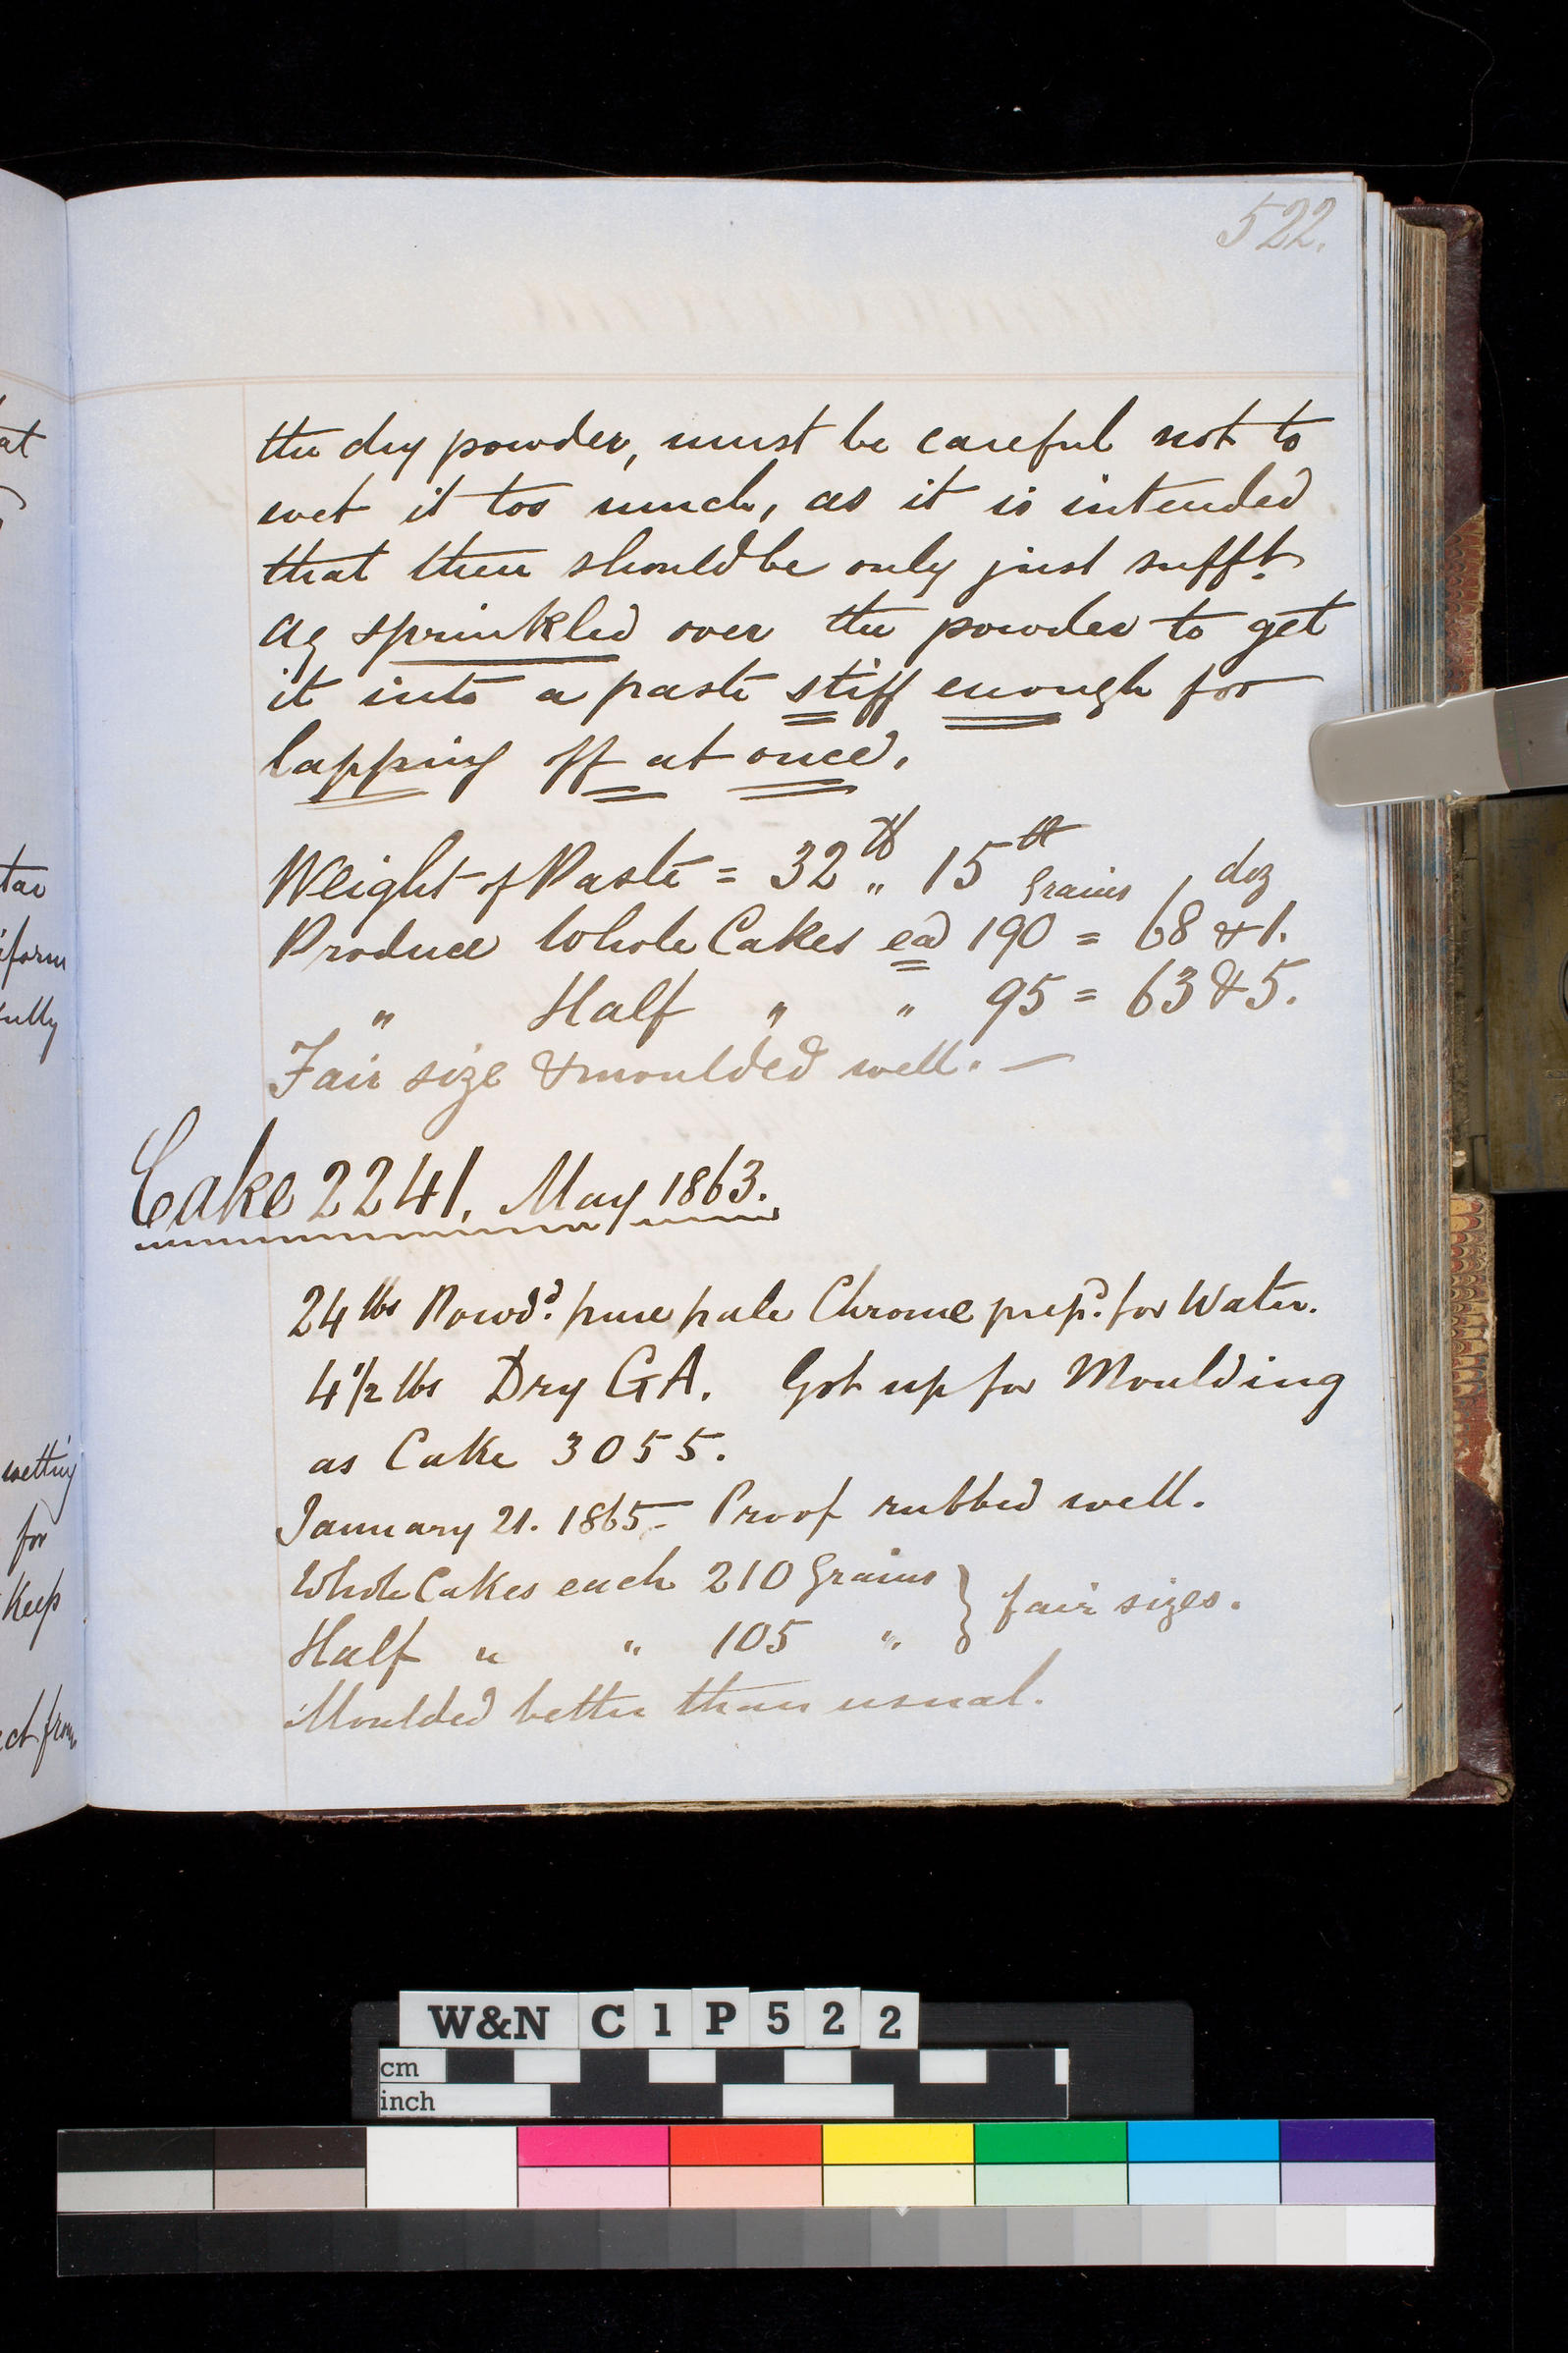 522.
the dry powder, must be careful not to
wet it too much, as it is intended
that there should be only just sufft.
Aq sprinkled over the powder to get
it into a paste stiff enough for
lapping off at once.
Weight of Paste = 32 lb „ 15
Grains doz
Produce Whole Cakes ea 190 = 68 & 1.
„ Half „ „ 95 = 63 & 5.
Fair size & moulded well. —
Cake 2241. May 1863.
24 lbs Powd. pure pale Chrome prepd. for Water.
4 1/2 lbs Dry GA. Got up for Moulding
as Cake 3055.
January 21. 1865 – Proof rubbed well.
Whole Cakes each 210 Grains } fair sizes.
Half „ „ 105 „
Moulded better than usual.
at
tar
form
fully
wetting
for
Keep
ct from
W&N C1P522
cm
inch